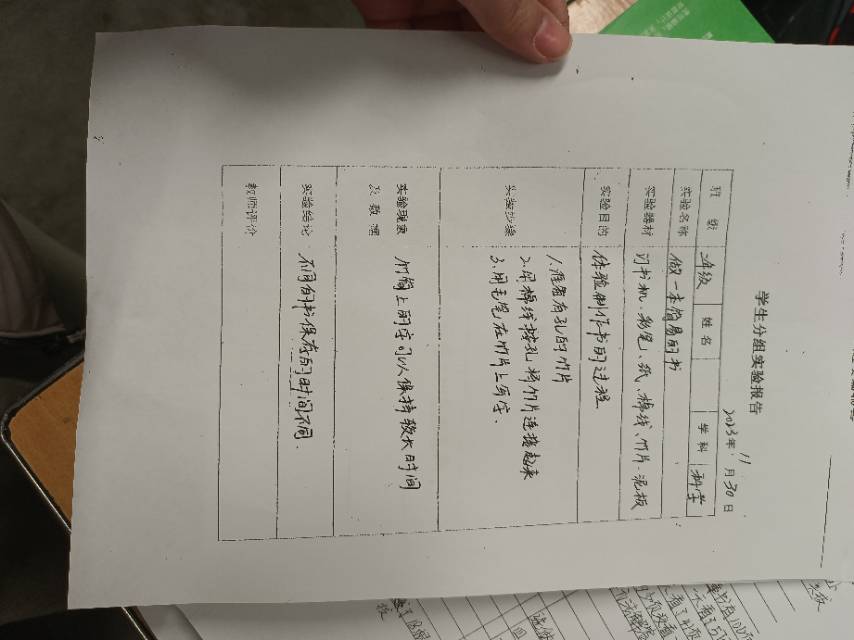 学生分组实验报告
2023年11月30日
班级 二年级 姓名 学科 科学
实验名称 做一本简易的书
实验器材 订书机、彩笔、纸、棉线、竹片、泥板
实验目的 体验制作书的过程
实验步骤 1.准备有孔的竹片
2.用棉线按孔将竹片连接起来
3.用毛笔在竹片上写字.
实验现象 竹简上的字可以保持较长时间
及数据
实验结论 不同的书保存的时间不同.
教师评价